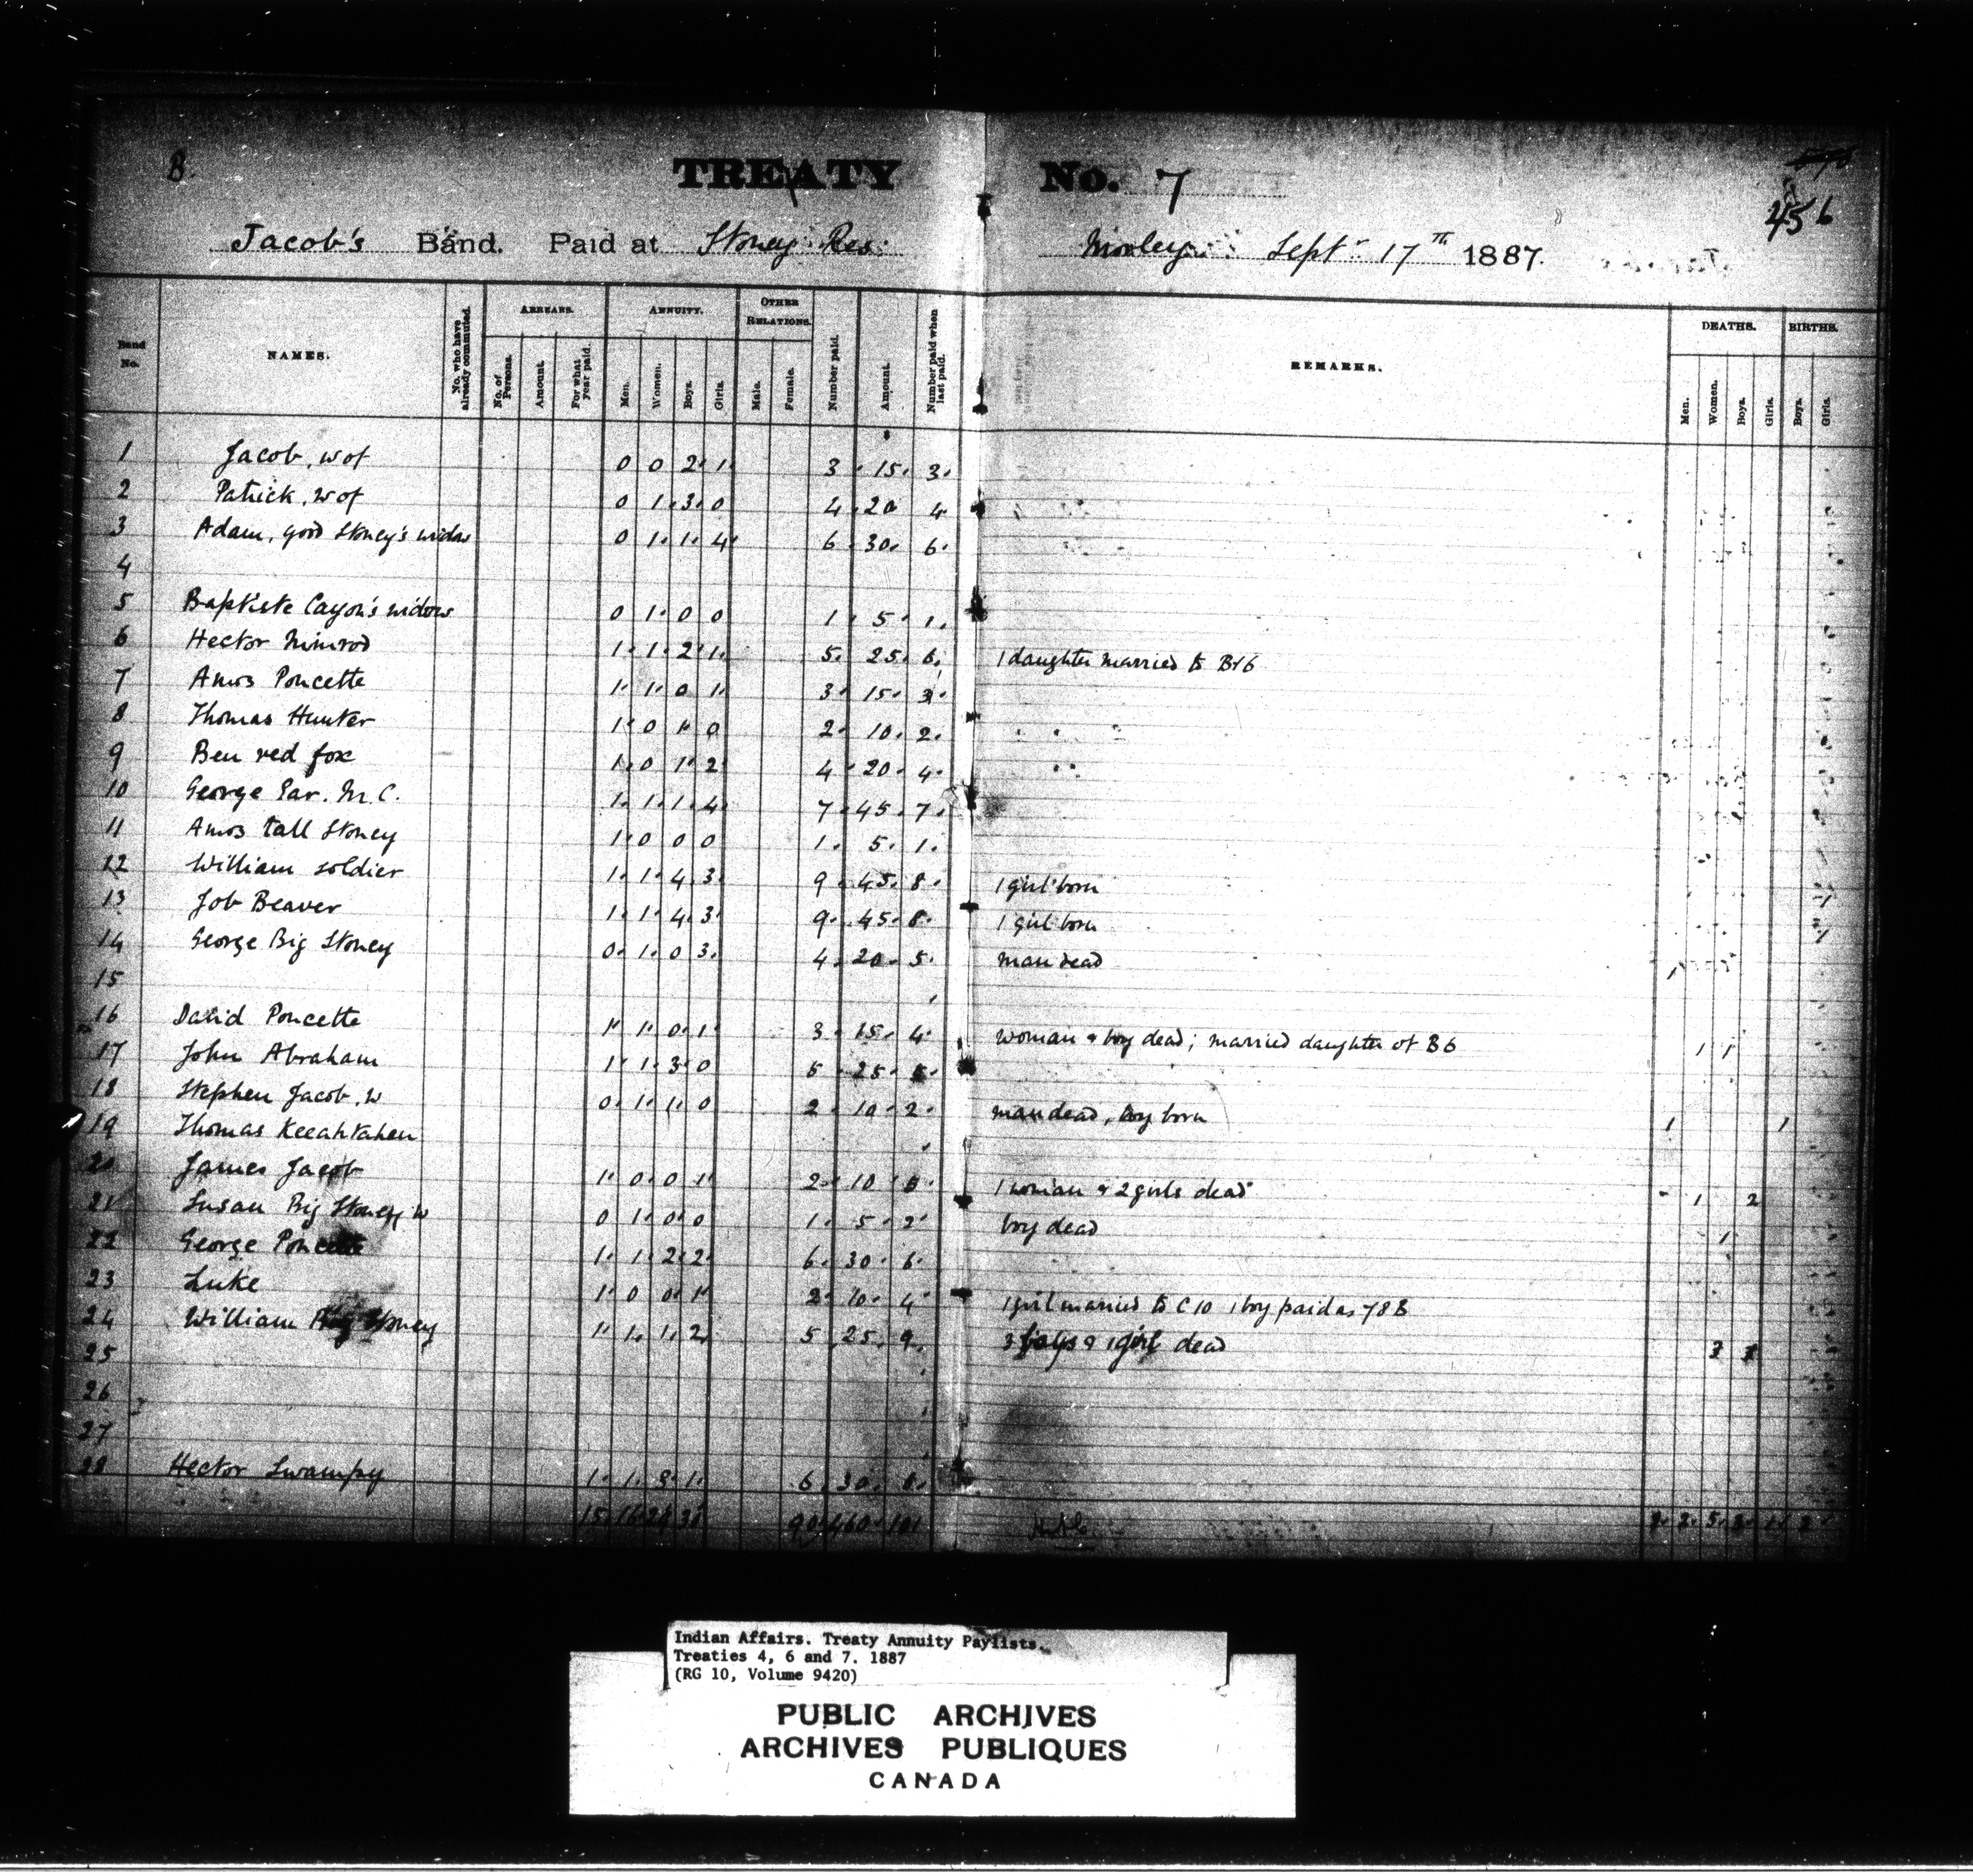 B. TREATY No. 7
456
Jacob's Band. Paid at Stoney Res: Morley Sept 17th 1887.
Band No. NAMES. No. who have already commuted. ARREARS. No. of Persons. Amount. For what year paid. ANNUITY. Men. Women. Boys. Girls. OTHER RELATIONS. Male. Female. Number paid. Amount. Number paid when last paid. REMARKS. DEATHS. Men. Women. Boys. Girls. BIRTHS. Boys. Girls.
1 Jacob, w of 0 0 2 1 3 15 3
2 Patrick, w of 0 1 3 0 4 20 4
3 Adam, good Stoney's widow 0 1 1 4 6 30 6
4
5 Baptiste Cayon's widow 0 1 0 0 1 5 1
6 Hector Nimrod 1 1 2 1 5 25 6 1 daughter married to B16
7 Amos Poucette 1 1 0 1 3 15 3
8 Thomas Hunter 1 0 1 0 2 10 2
9 Ben red fox 1 0 1 2 4 20 4
10 George Ear. M.C. 1 1 1 4 7 45 7
11 Amos tall Stoney 1 0 0 0 1 5 1
12 William soldier 1 1 4 3 9 45 8 1 girl born 1
13 Job Beaver 1 1 4 3 9 45 8 1 girl born 1
14 George Big Stoney 0 1 0 3 4 20 5 man dead 1
15
16 David Poucette 1 1 0 1 3 15 4 woman & boy dead; married daughter of B6 1 1
17 John Abraham 1 1 3 0 5 25 5
18 Stephen Jacob, W 0 1 1 0 2 10 2 man dead, boy born 1 1
19 Thomas Keeahtahen
20 James Jacob 1 0 0 1 2 10 5 1 woman & 2 girls dead 1 2
21 Susan Big Stoney W 0 1 0 0 1 5 2 boy dead 1
22 George Poucette 1 1 2 2 6 30 6
23 Luke 1 0 0 1 2 10 4 1 girl married to C10 1 boy paid as 78B
24 William Big Stoney 1 1 1 2 5 25 9 3 boys & 1 girl dead 3 1
25
26
27
28 Hector Swampy 1 1 3 1 6 30 8
15 16 31 90 460 101 2 2 5 3 1 2
Indian Affairs. Treaty Annuity Paylists.
Treaties 4, 6 and 7. 1887
(RG 10, Volume 9420)
PUBLIC ARCHIVES
ARCHIVES PUBLIQUES
CANADA